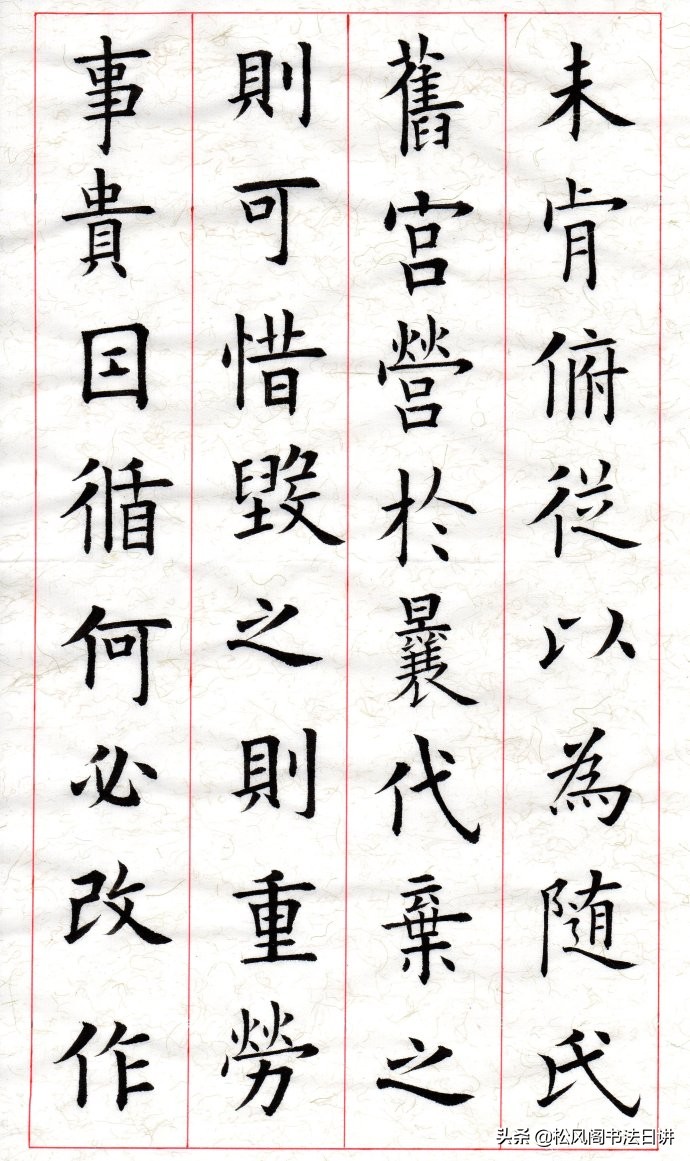 未肯俯從以為随氏
舊宫營於曩代棄之
則可惜毀之則重勞
事貴因循何必改作
头条 @松风阁书法日讲